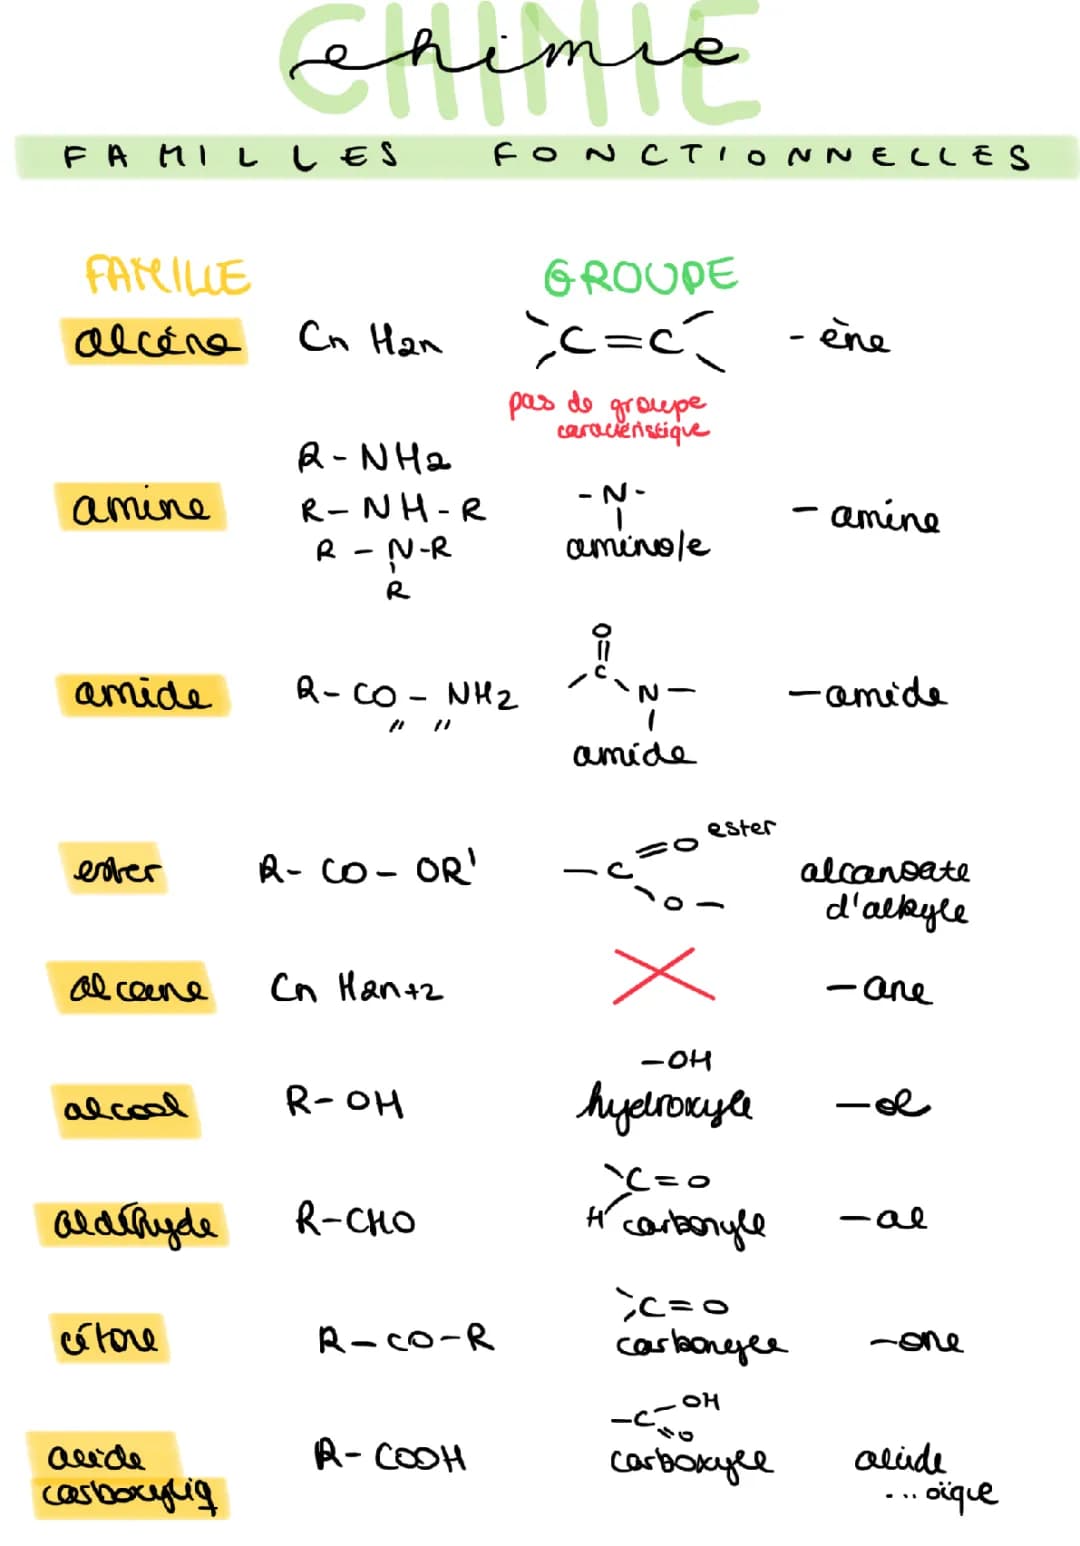 CHIMIE
chimie
FAMILLES FONCTIONNELLES
FAMILLE GROUPE
alcène Cn H2n C=C - ène
pas de groupe
caractéristique
R-NH2
amine R-NH-R -N- - amine
R-N-R amino/e
R
O
C
amide R-CO-NH2 N- -amide
" "
amide
ester
=O
ester R-CO-OR' -C alcanoate
O- d'alkyle
alcane Cn H2n+2 -ane
-OH
alcool R-OH hydroxyle -ol
C=O
aldéhyde R-CHO H carbonyle -al
C=O
cétone R-CO-R carbonyle -one
-C-OH
=O
acide R-COOH carboxyle acide
carboxyliq ... oïque